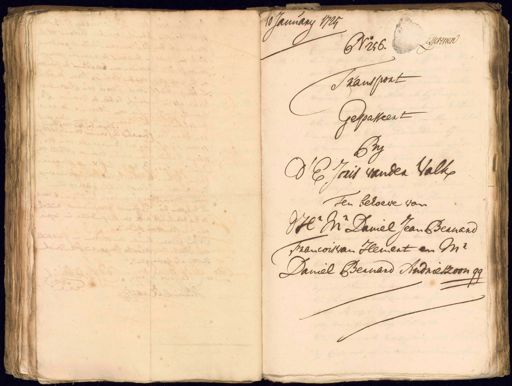 10 January 1725
No 256.
Transport
Gepasseert
By
D' E Joris vanden Valk
Ten behoeve van
d' Hr. Mr. Daniel Jean Bernard
Francois van en Mr.
Daniel Bernard